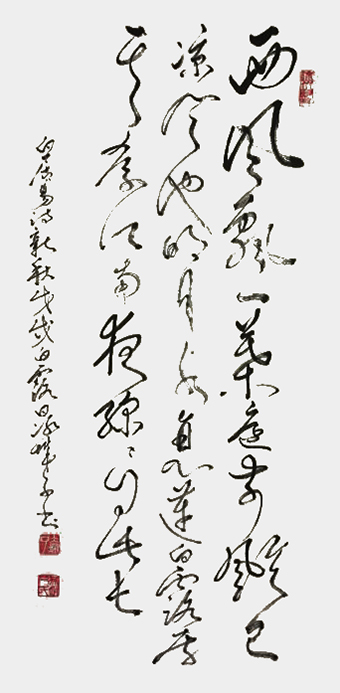 西風飄一葉庭前颯已
涼風池明月水衰蓮白露房
其奈江南夜綿綿自此長
白居易诗新秋戊戌白露日书